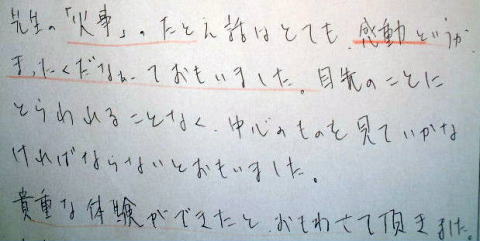 先生の「火事」のたとえ話はとても、感動というか
まったくだなぁっておもいました。目先のことに
とらわれることなく、中心のものを見ていかな
ければならないとおもいました。
貴重な体験ができたと、おもわさて頂きました。